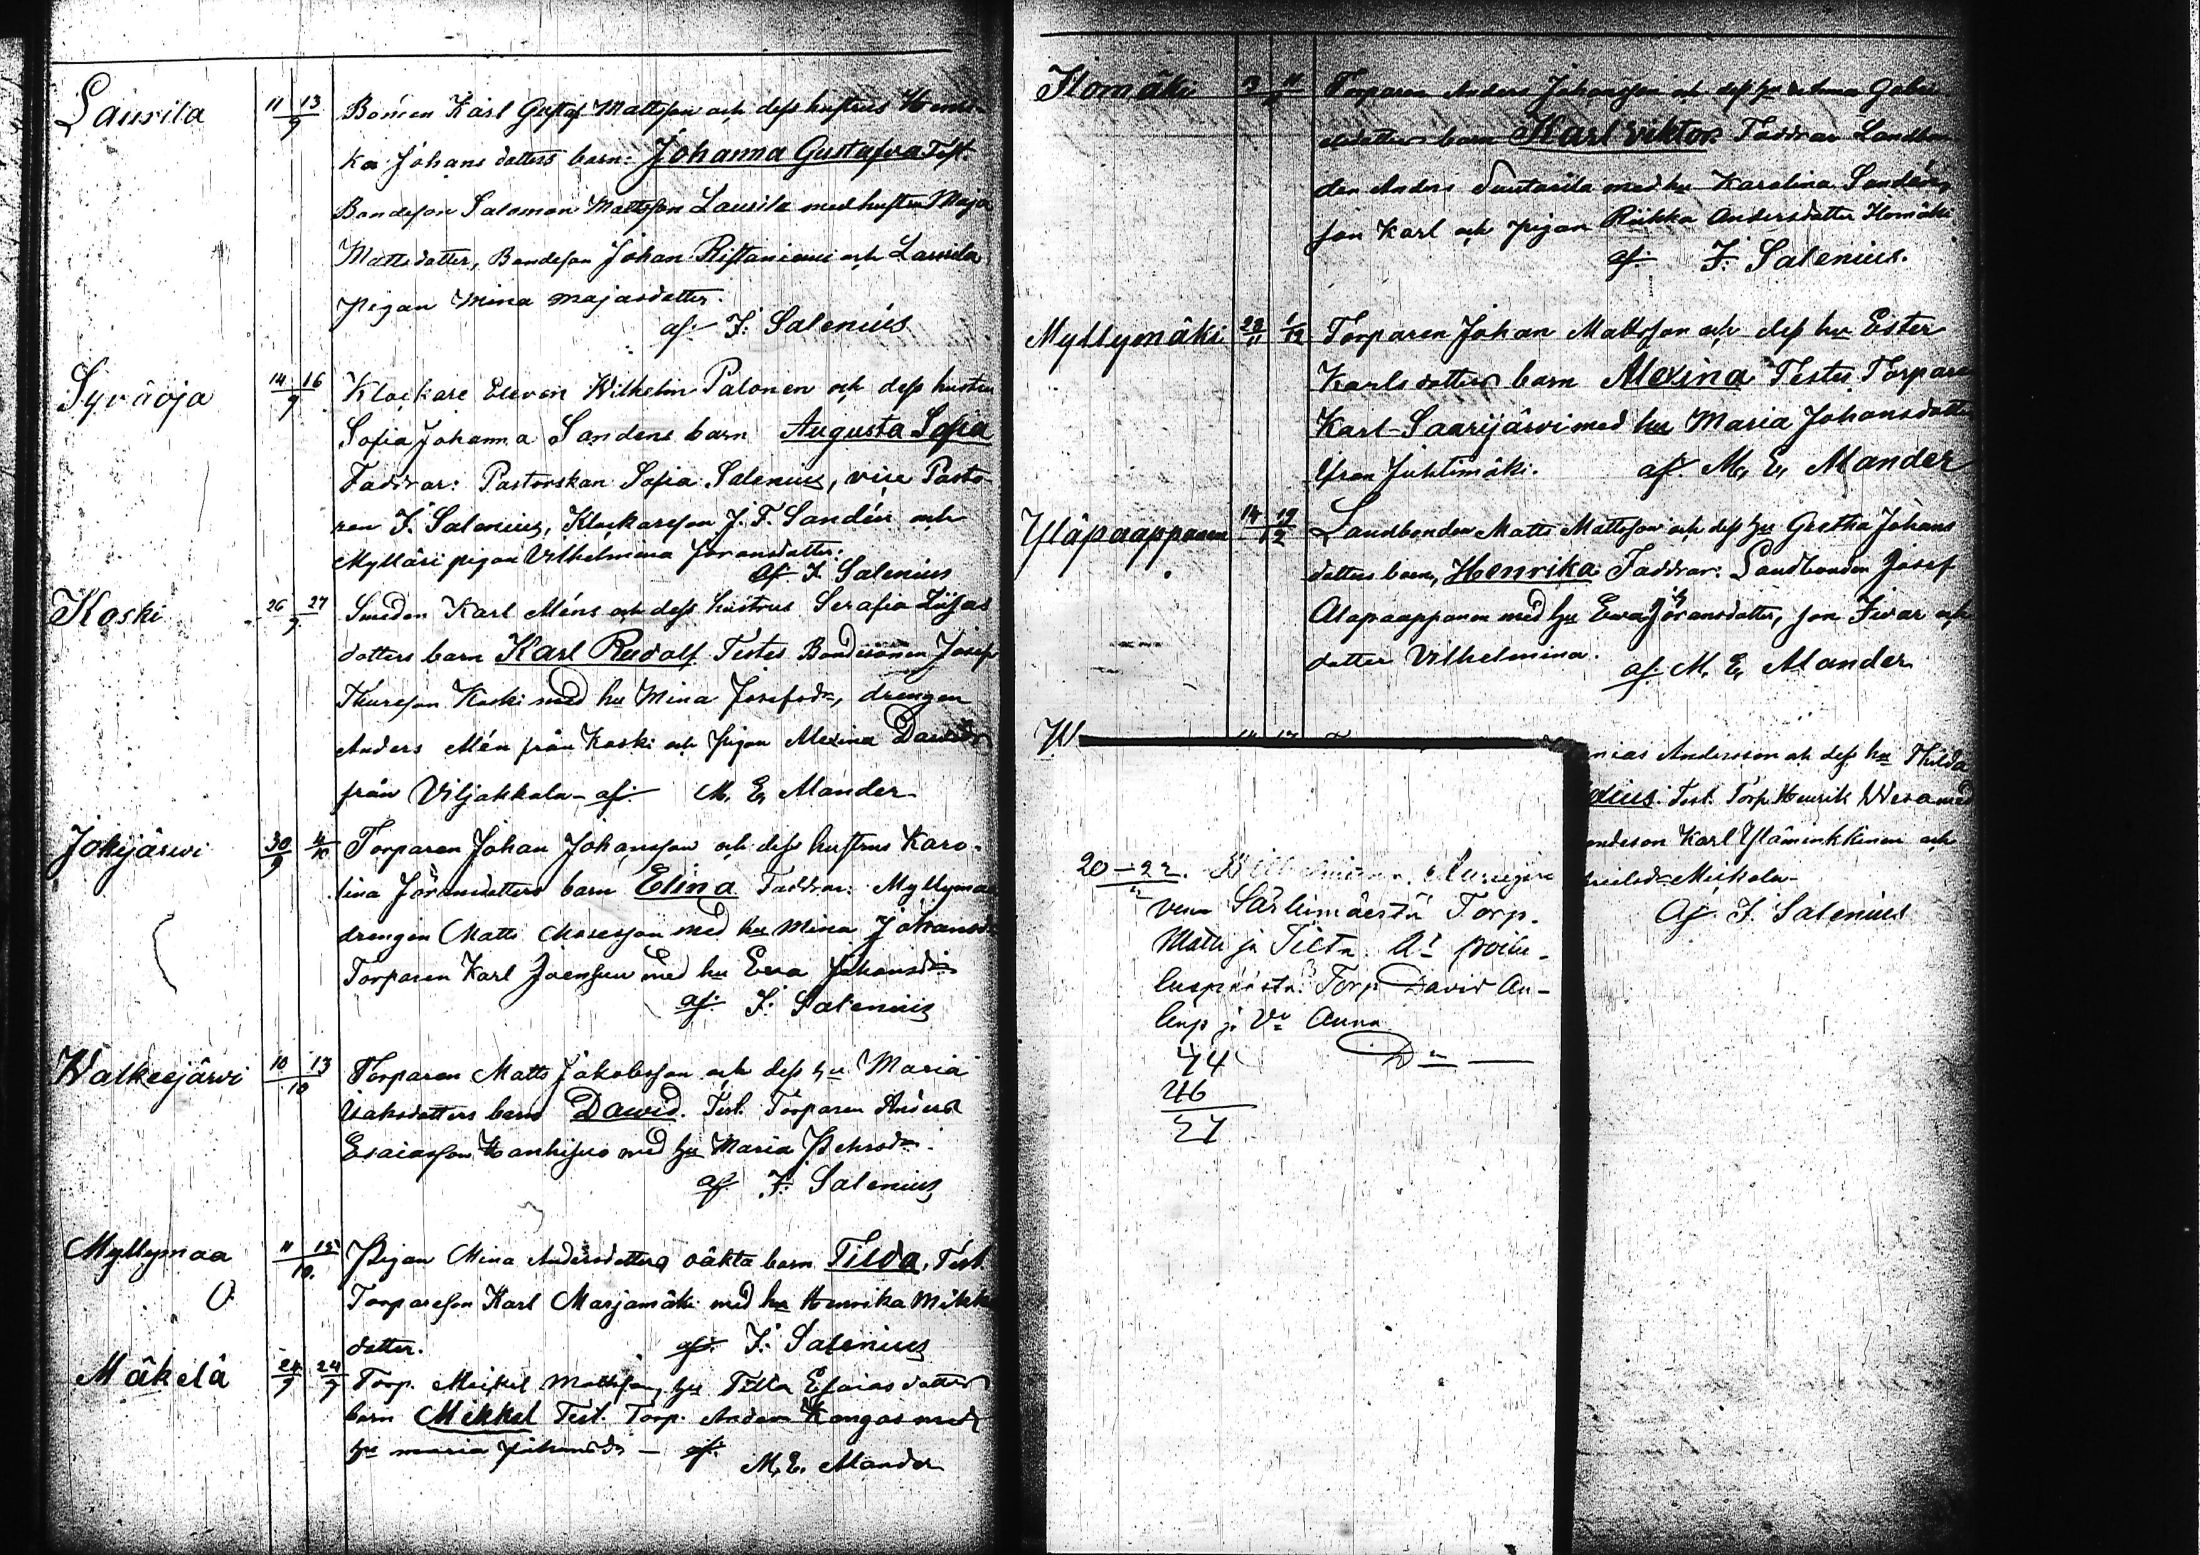 Laurila 11 13/9 Bonden Karl Gustaf Mattsson och dess hustrus Henri-
ka Johansdotters barn: Johanna Gustafva Test.
Bondeson Salomon Mattsson Laurila med hustru Maja
Mattsdotter, Bondeson Johan Ristaniemi och Laurila
pigan Mina Majasdotter.
af: F. Salenius
Syväoja 14 16/9 Klockare Eleven Wilhelm Palonen och dess hustru
Sofia Johanna Sandens barn Augusta Sofia
Faddrar: Pastorskan Sofia Salenius, vice Pasto-
ren F. Salenius, Klockareson J. F. Sandén och
Mylläri pigan Vilhelmina Göransdotter.
af F. Salenius
Koski 26 27/9 Smeden Karl Méns och dess hustrus Serafia
dotters barn Karl Rudolf Testes Bondesonen Josef
Thuresson Koski med hu Mina Josefsdr, drengen
Anders Mén från Koski och pigan Alexina Davidsdr
från Viljakkala - af: M. E. Mander
Jokijärvi 30/9 4/10 Torparen Johan Johansson och dess hustrus Karo-
lina Göransdotters barn Elina Faddrar: Myllymaa
drengen Matts Mosesson med hu Mina Johansdr
Torparen Karl Joensuu med hu Eva Johansdr
af: F. Salenius
Walkeejärvi 10 13/10 Torparen Matts Jakobsson och dess hu Maria
Isaksdotters barn Dawid. Test. Torparen Anders
Esaiasson Kanhisuo med hu Maria Pehrsdr.
af: F. Salenius
Myllymaa 11 15/10. Pigan Mina Andersdotters oäkta barn Tilda, Test.
O. Torpareson Karl Marjamäki med hu Henrika Mikkels
dotter. af: F. Salenius
Mäkelä 24/9 24/9 Torp. Meikel Mattsson, hu Tilla Esaiasdotters
barn Mikkel Test. Torp. Anders Kangas med
hu Maria Johansdr - af: M. E. Mander
Ilomäki 3 11 Torparen Anders Johansson och dess hu Gabri-
elsdotters barn Karl Viktor. Faddrar Landbon-
den Anders Sautarila med hu Karolina Sandén,
son Karl och pigan Riikka Andersdotter Ilomäki
af: F. Salenius.
Myllymäki 28/11 1/12 Torparen Johan Mattsson och dess hu Ester
Karlsdotters barn Alexina Testes Torparen
Karl Saarijärvi med hu Maria Johansdotter
ifrån Juhtimäki. af. M. E. Mander
Yläpaappanen 14 19/12 Landbonden Matts Mattsson och dess hu Gretha Johans
dotters barn, Henrika Faddrar: Landbonden Josef
Alapaappanen med hu Eva Göransdotter, son Ivar och
dotter Vilhelmina. af: M. E. Mander
nias Andersson och dess hu Hilda
dius. Test. Torp. Henrik Wesa med
ondeson Karl Yläminkkinen och
Meikola-
Af: F. Salenius
20-22.
Särkimäestä Torp.
Matti ja Tilta. A:
Torp David Au-
ja Vo Anna
44 D
46
27